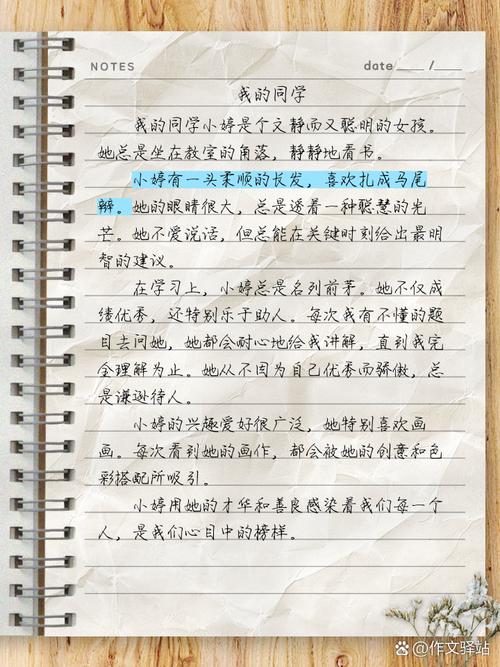 NOTES
date ___ /___
我的同学
我的同学小婷是个文静而又聪明的女孩。
她总是坐在教室的角落，静静地看书。
小婷有一头柔顺的长发，喜欢扎成马尾
辫。她的眼睛很大，总是透着一种聪慧的光
芒。她不爱说话，但总能在关键时刻给出最明
智的建议。
在学习上，小婷总是名列前茅。她不仅成
绩优秀，还特别乐于助人。每次我有不懂的题
目去问她，她都会耐心地给我讲解，直到我完
全理解为止。她从不因为自己优秀而骄傲，总
是谦逊待人。
小婷的兴趣爱好很广泛，她特别喜欢画
画。每次看到她的画作，都会被她的创意和色
彩搭配所吸引。
小婷用她的才华和善良感染着我们每一个
人，是我们心目中的榜样。
@作文驿站